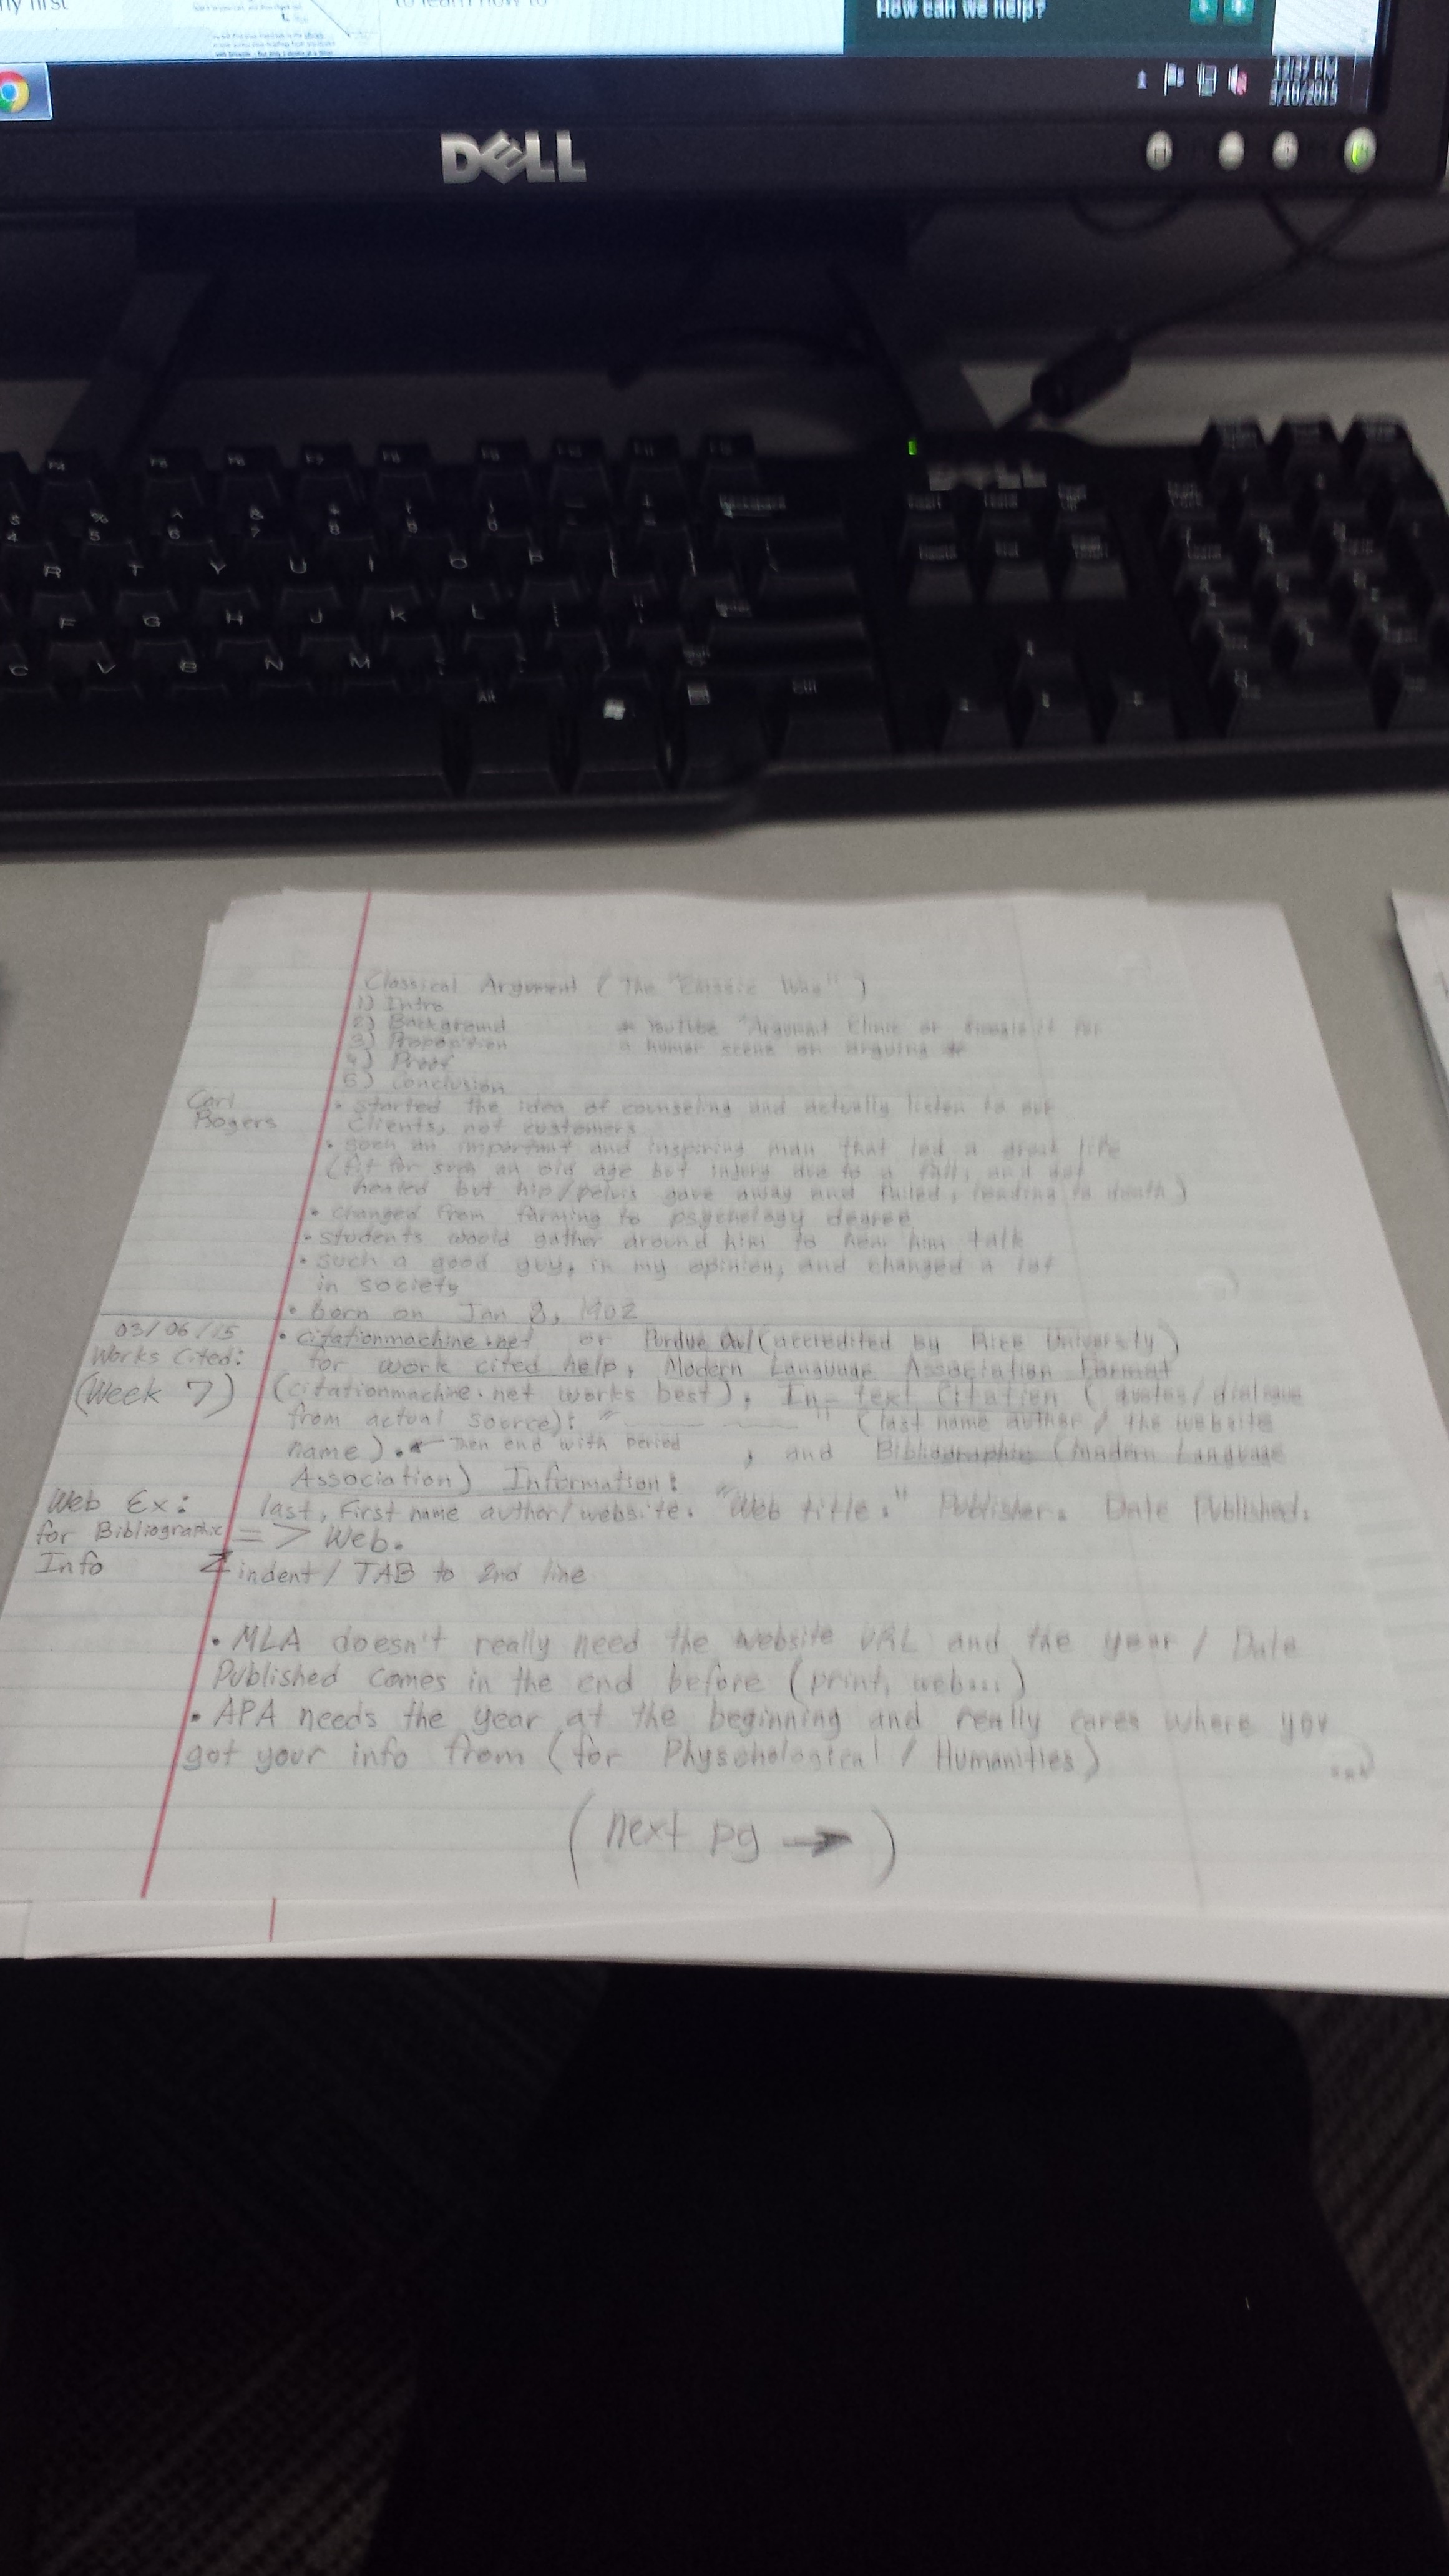 ny first
to learn how to
How can we help?
3/10/2015
DELL
DELL
Backspace
R T Y U I O P
F G H J K L
C V B N M
Alt
Ctrl
Classical Argument (The "Classic Way")
1) Intro
2) Background * YouTube "Argument Clinic or Google it for
3) Proposition a humor scene on arguing *
4) Proof
5) Conclusion
Carl Rogers • started the idea of counseling and actually listen to our
clients, not customers
• an important and inspiring man that led a great life
(fit for such an old age but injury due to a fall, and got
healed but hip/pelvis gave away and failed, leading to death)
• changed from farming to psychology degree
• students would gather around him to hear him talk
• such a good guy, in my opinion, and changed a lot
in society
• born on Jan 8, 1902
03/06/15 • citationmachine.net or Purdue Owl (accredited by Rice University)
Works Cited: for work cited help, Modern Language Association Format
(Week 7) (citationmachine.net works best), In-text Citation (quotes/dialogue
from actual source): " " (last name author / the website
name). Then end with period , and Bibliographic (Modern Language
Association) Information:
Web Ex: last, First name author/website. "Web title." Publisher. Date Published.
for Bibliographic => Web.
Info indent/TAB to 2nd line
• MLA doesn't really need the website URL and the year / Date
Published comes in the end before (print, web...)
• APA needs the year at the beginning and really cares where you
got your info from (for Physchological / Humanities)
(next pg →)